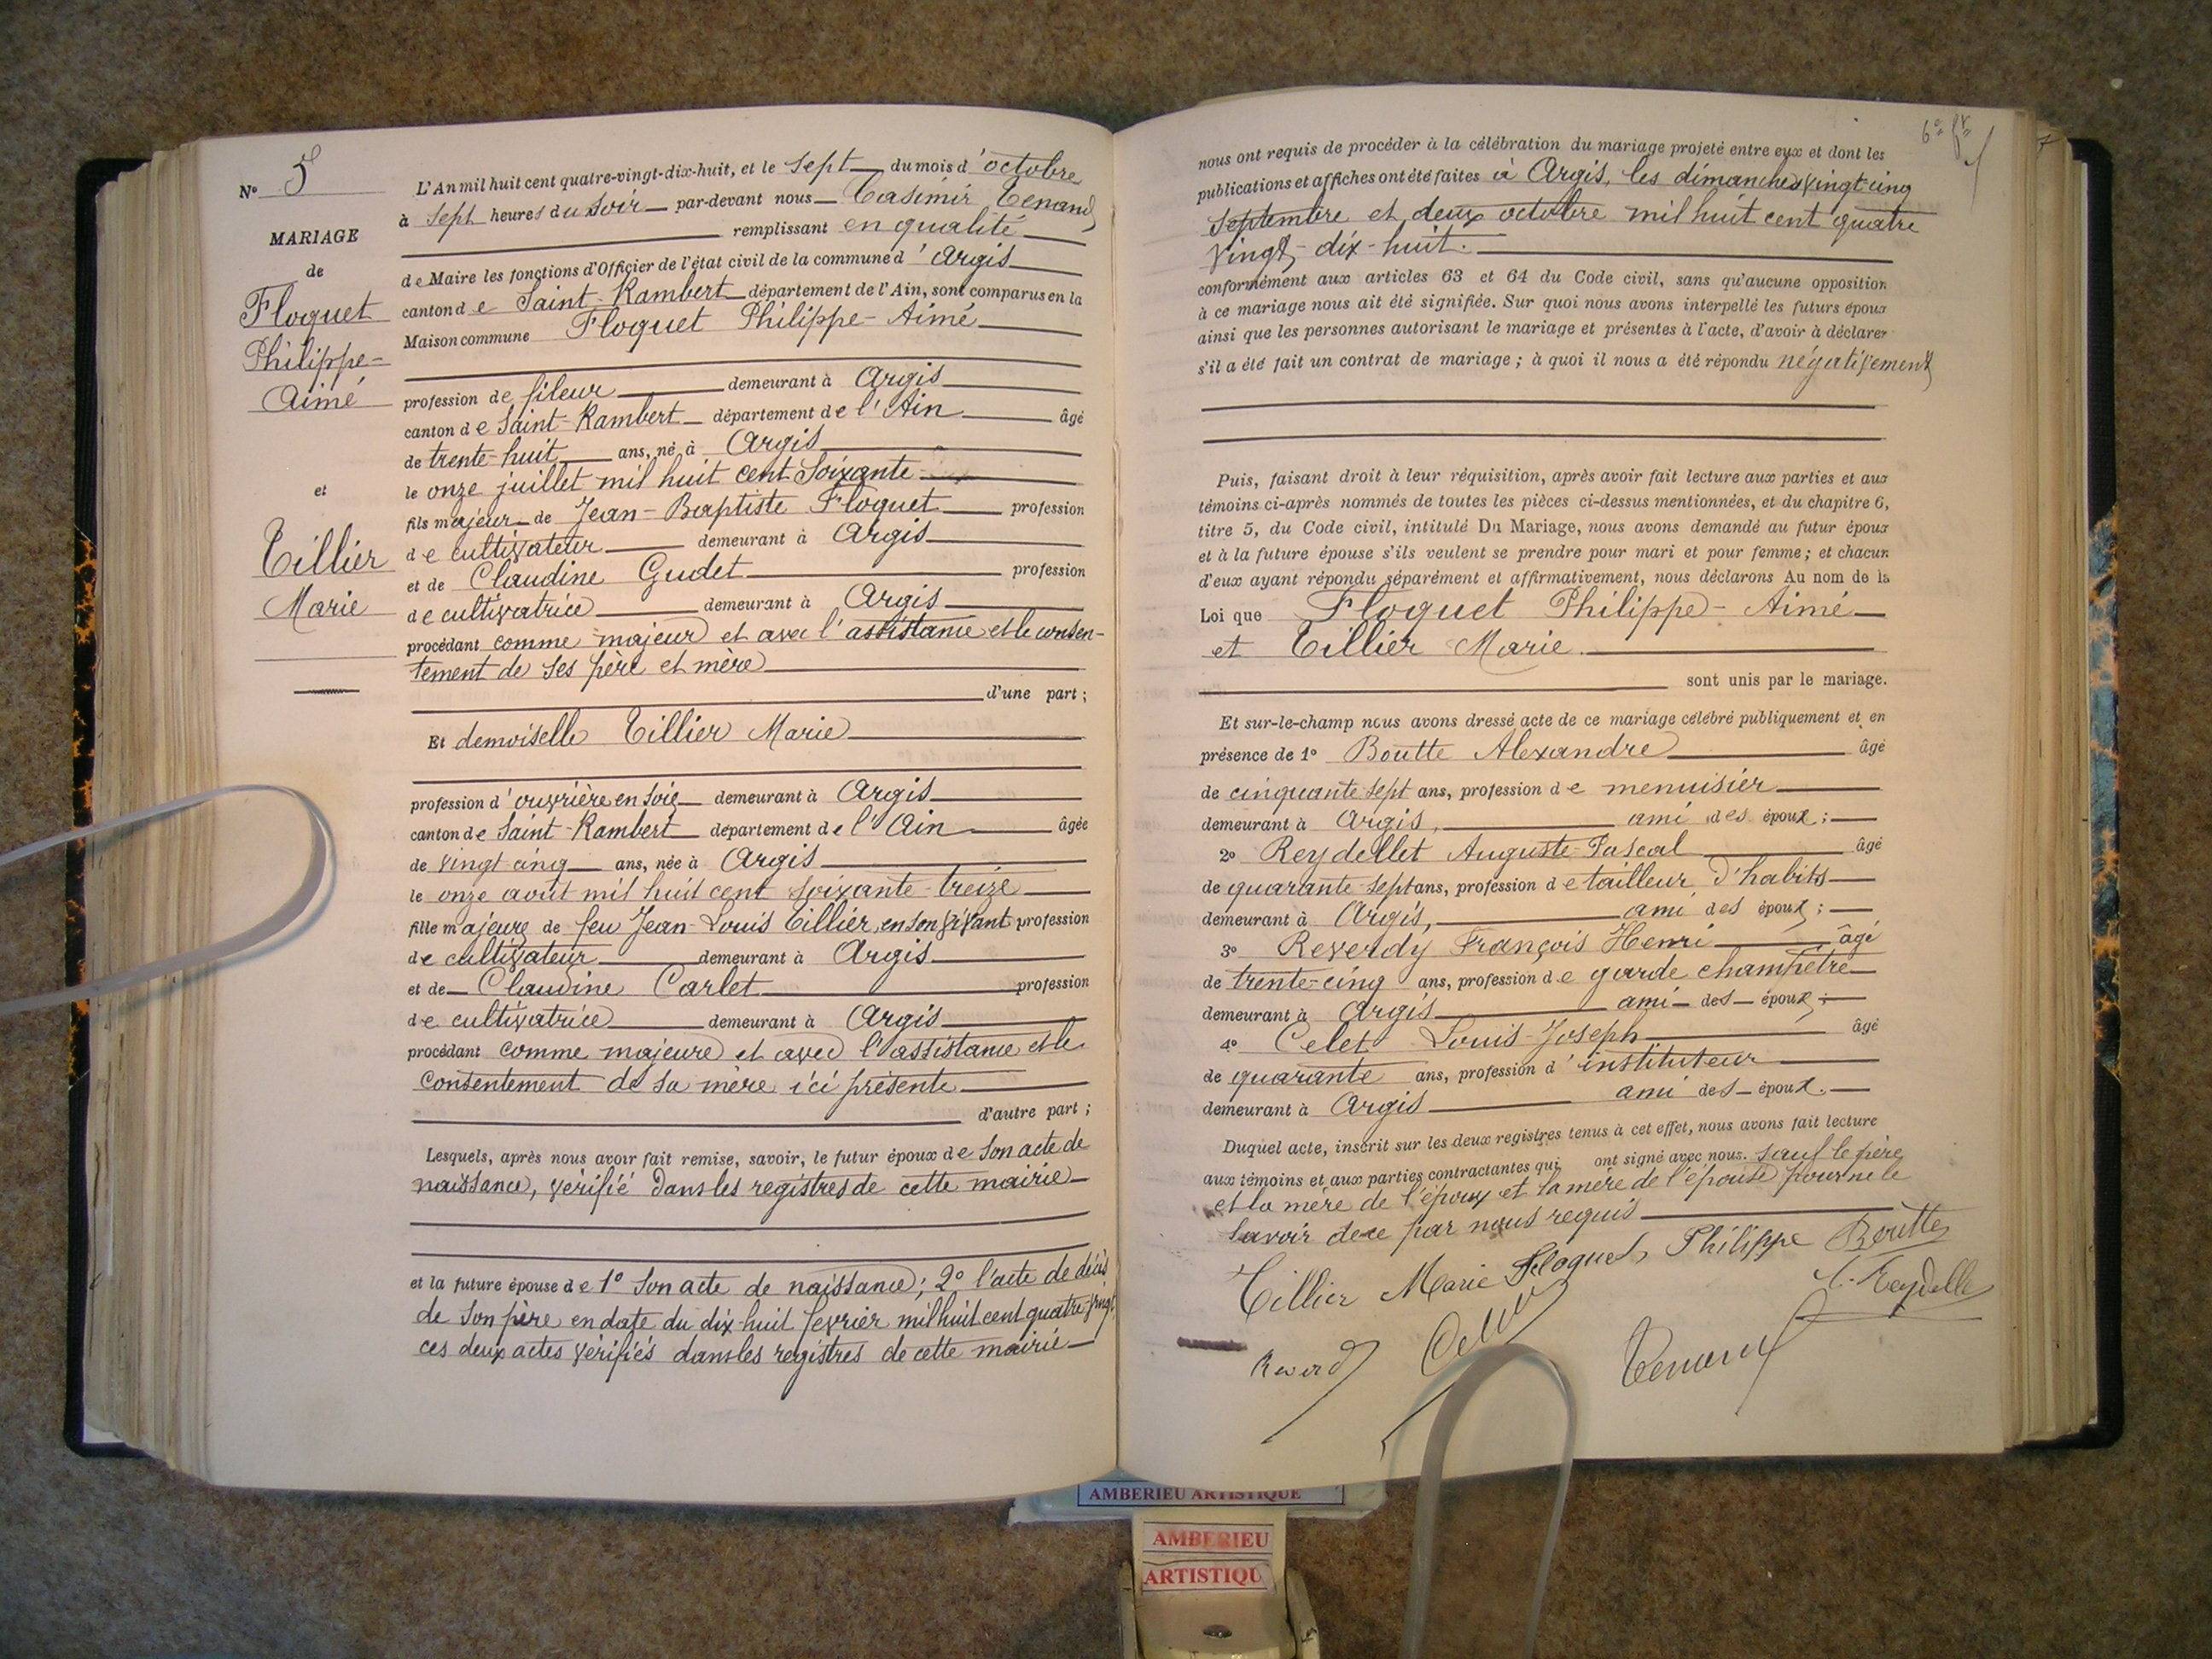 N° 5
MARIAGE
de
Floquet
Philippe-
Aimé
et
Tillier
Marie
L'An mil huit cent quatre-vingt-dix-huit, et le sept du mois d'octobre
à sept heures du soir par-devant nous Casimir Tenand
remplissant en qualité
de Maire les fonctions d'Officier de l'état civil de la commune d'Argis
canton de Saint-Rambert département de l'Ain, sont comparus en la
Maison commune Floquet Philippe-Aimé
profession de fileur demeurant à Argis
canton de Saint-Rambert département de l'Ain âgé
de trente-huit ans, né à Argis
le onze juillet mil huit cent soixante
fils majeur de Jean-Baptiste Floquet profession
de cultivateur demeurant à Argis
et de Claudine Gudet profession
de cultivatrice demeurant à Argis
procédant comme majeur et avec l'assistance et le consen-
tement de ses père et mère
d'une part ;
Et demoiselle Tillier Marie
profession d'ouvrière en soie demeurant à Argis
canton de Saint-Rambert département de l'Ain âgée
de vingt cinq ans, née à Argis
le onze août mil huit cent soixante-treize
fille majeure de feu Jean-Louis Tillier, en son vivant profession
de cultivateur demeurant à Argis
et de Claudine Carlet profession
de cultivatrice demeurant à Argis
procédant comme majeure et avec l'assistance et le
consentement de sa mère ici présente
d'autre part ;
Lesquels, après nous avoir fait remise, savoir, le futur époux de son acte de
naissance, vérifié dans les registres de cette mairie
et la future épouse de 1° son acte de naissance ; 2° l'acte de décès
de son père en date du dix-huit février mil huit cent quatre-vingt
ces deux actes vérifiés dans les registres de cette mairie
nous ont requis de procéder à la célébration du mariage projeté entre eux et dont les
publications et affiches ont été faites à Argis, les dimanches vingt-cinq
septembre et deux octobre mil huit cent quatre
vingt-dix-huit.
conformément aux articles 63 et 64 du Code civil, sans qu'aucune opposition
à ce mariage nous ait été signifiée. Sur quoi nous avons interpellé les futurs époux
ainsi que les personnes autorisant le mariage et présentes à l'acte, d'avoir à déclarer
s'il a été fait un contrat de mariage ; à quoi il nous a été répondu négativement
Puis, faisant droit à leur réquisition, après avoir fait lecture aux parties et aux
témoins ci-après nommés de toutes les pièces ci-dessus mentionnées, et du chapitre 6,
titre 5, du Code civil, intitulé Du Mariage, nous avons demandé au futur époux
et à la future épouse s'ils veulent se prendre pour mari et pour femme ; et chacun
d'eux ayant répondu séparément et affirmativement, nous déclarons Au nom de la
Loi que Floquet Philippe-Aimé
et Tillier Marie.
sont unis par le mariage.
Et sur-le-champ nous avons dressé acte de ce mariage célébré publiquement et en
présence de 1° Boutte Alexandre âgé
de cinquante sept ans, profession de menuisier
demeurant à Argis, ami des époux ;
2° Reydellet Auguste-Pascal âgé
de quarante-sept ans, profession de tailleur d'habits
demeurant à Argis, ami des époux ;
3° Reverdy François Henri âgé
de trente-cinq ans, profession de garde champêtre
demeurant à Argis ami des époux ;
4° Celet Louis-Joseph âgé
de quarante ans, profession d'instituteur
demeurant à Argis ami des époux.
Duquel acte, inscrit sur les deux registres tenus à cet effet, nous avons fait lecture
aux témoins et aux parties contractantes qui ont signé avec nous. sauf le père
et la mère de l'époux et la mère de l'épouse pour ne le
savoir de ce par nous requis
Tillier Marie Floquet Philippe Boutte
Reverdy Celet Tenand
AMBERIEU ARTISTIQUE
AMBERIEU
ARTISTIQU